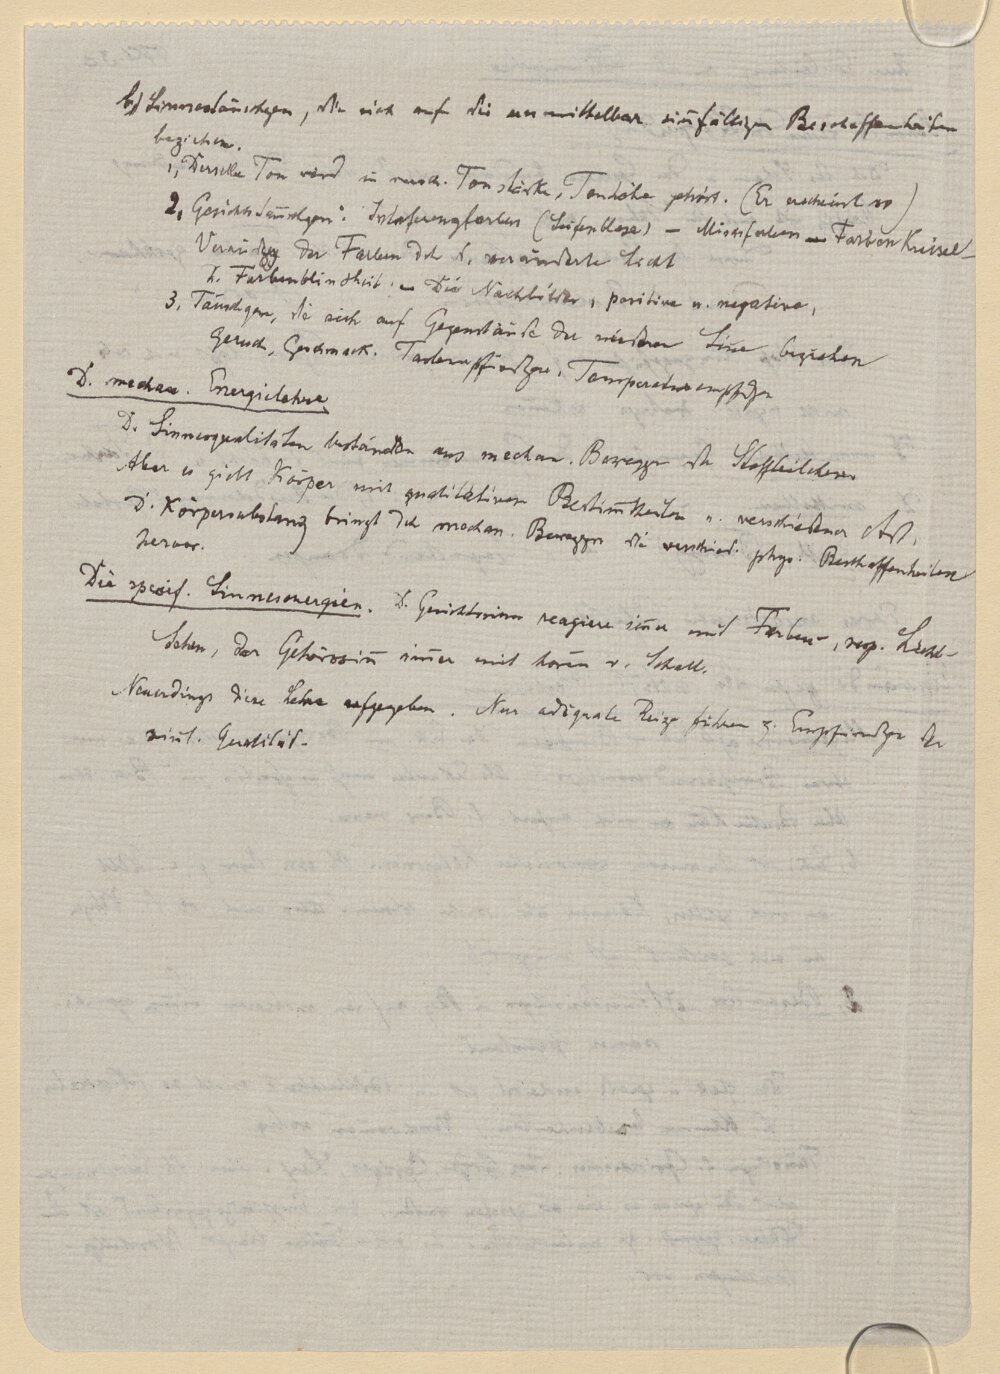 b) Sinnestäuschgen, die sich auf die unmittelbar siñfälligen Beschaffenheiten
beziehen.
1, Derselbe Ton wird in versch. Tonstärke, Tonhöhe gehört. (Er erscheint so)
2, Gesichtstäuschgen: Interferenzfarben (Seifenblase) – Mischfarben – Farbenkreisel –
Verändgg der Farben dch d. veränderte Licht
D. Farbenblindheit. – Die Nachbilder, positive u. negative,
3, Täuschgen, die sich auf Gegenstände der niederen Sinne beziehen
Geruch, Geschmack. Tastempfindgen, Temperaturempfdgen
D. mechan. Energielehre
D. Sinnesqualitäten beständen aus mechan. Beweggn der Stoffteilchen
Aber es giebt Körper mit qualitativen Bestim̃theiten u. verschiedener Art.
D. Körpersubstanz bringt dch mechan. Beweggn die verschied. phys. Beschaffenheiten
hervor.
Die spezif. Sinnesenergien. D. Gesichtssinn reagiere im̃er mit Farben-, resp. Licht-
sehen, der Gehörssiñ im̃er mit hören v. Schall.
Neuerdings diese Lehre aufgegeben. Nur adäquate Reize führen z. Empfindgen der
sinnl. Qualität.